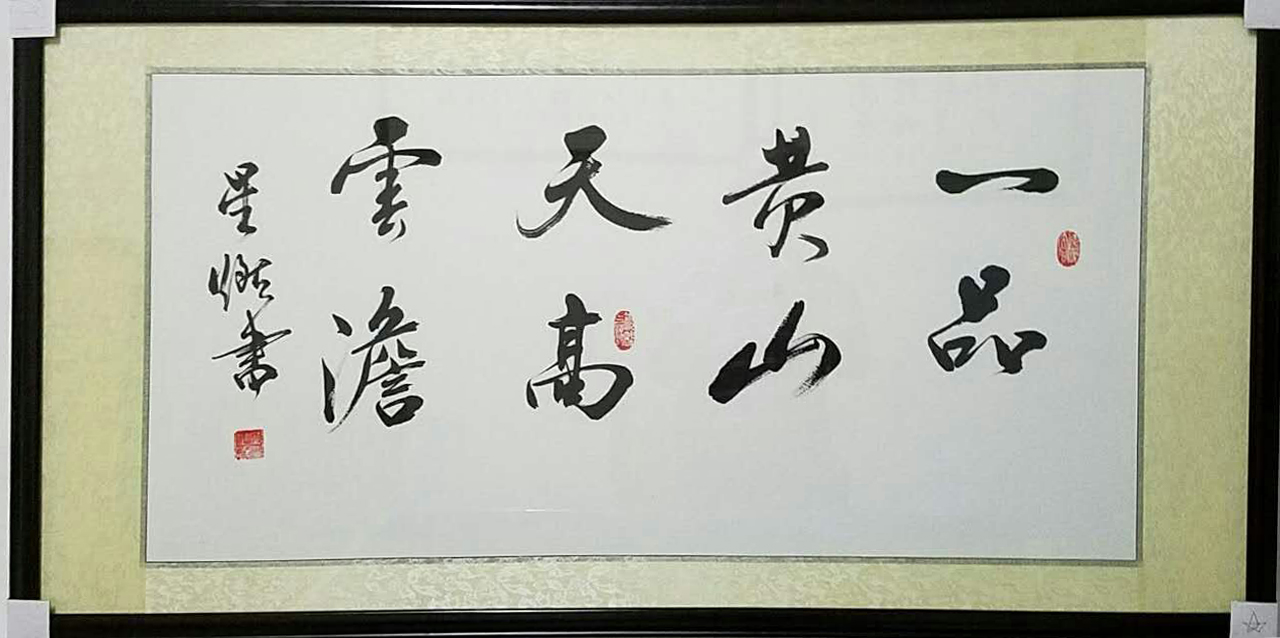 一品
黄山
天高
雲澹
星燃書